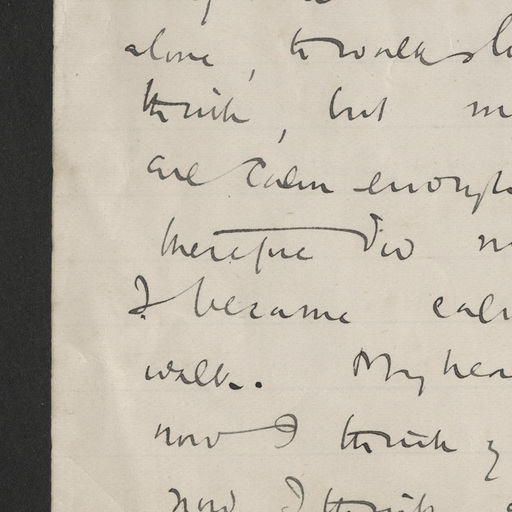 alone, to walk
think, but
are calm enough
therefore did
I became
walk. My
now I think
now I think